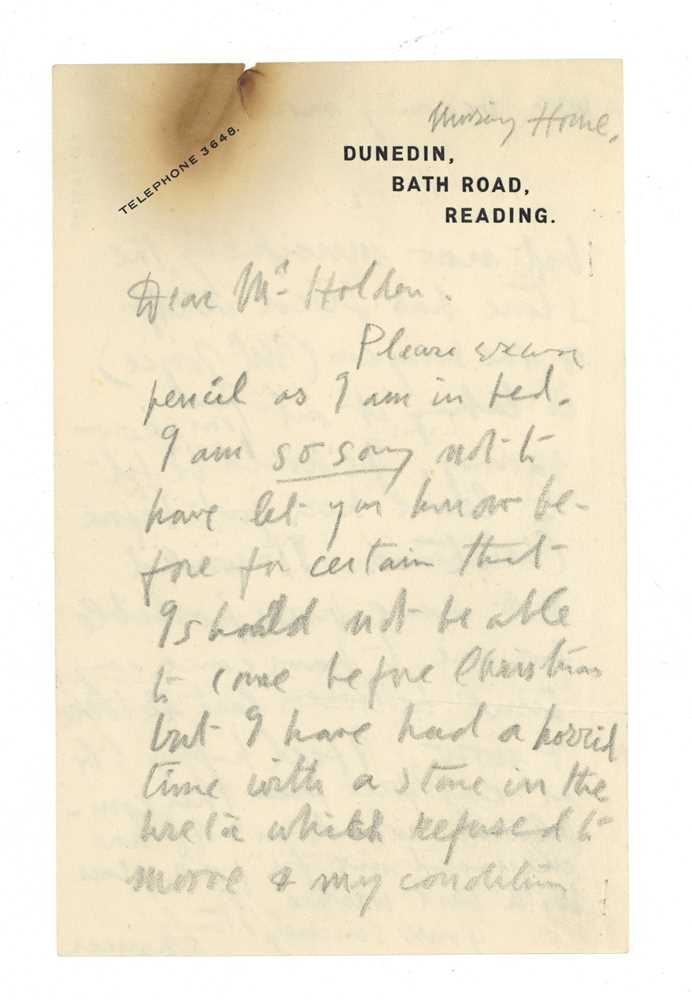 Nursing Home,
TELEPHONE 3648.
DUNEDIN,
BATH ROAD,
READING.
Dear Mrs Holden.
Please excuse
pencil as I am in bed.
I am so sorry not to
have let you know be-
fore for certain that
I should not be able
to come before Christmas
but I have had a horrid
time with a stone in the
ureta which refused to
move & my condition